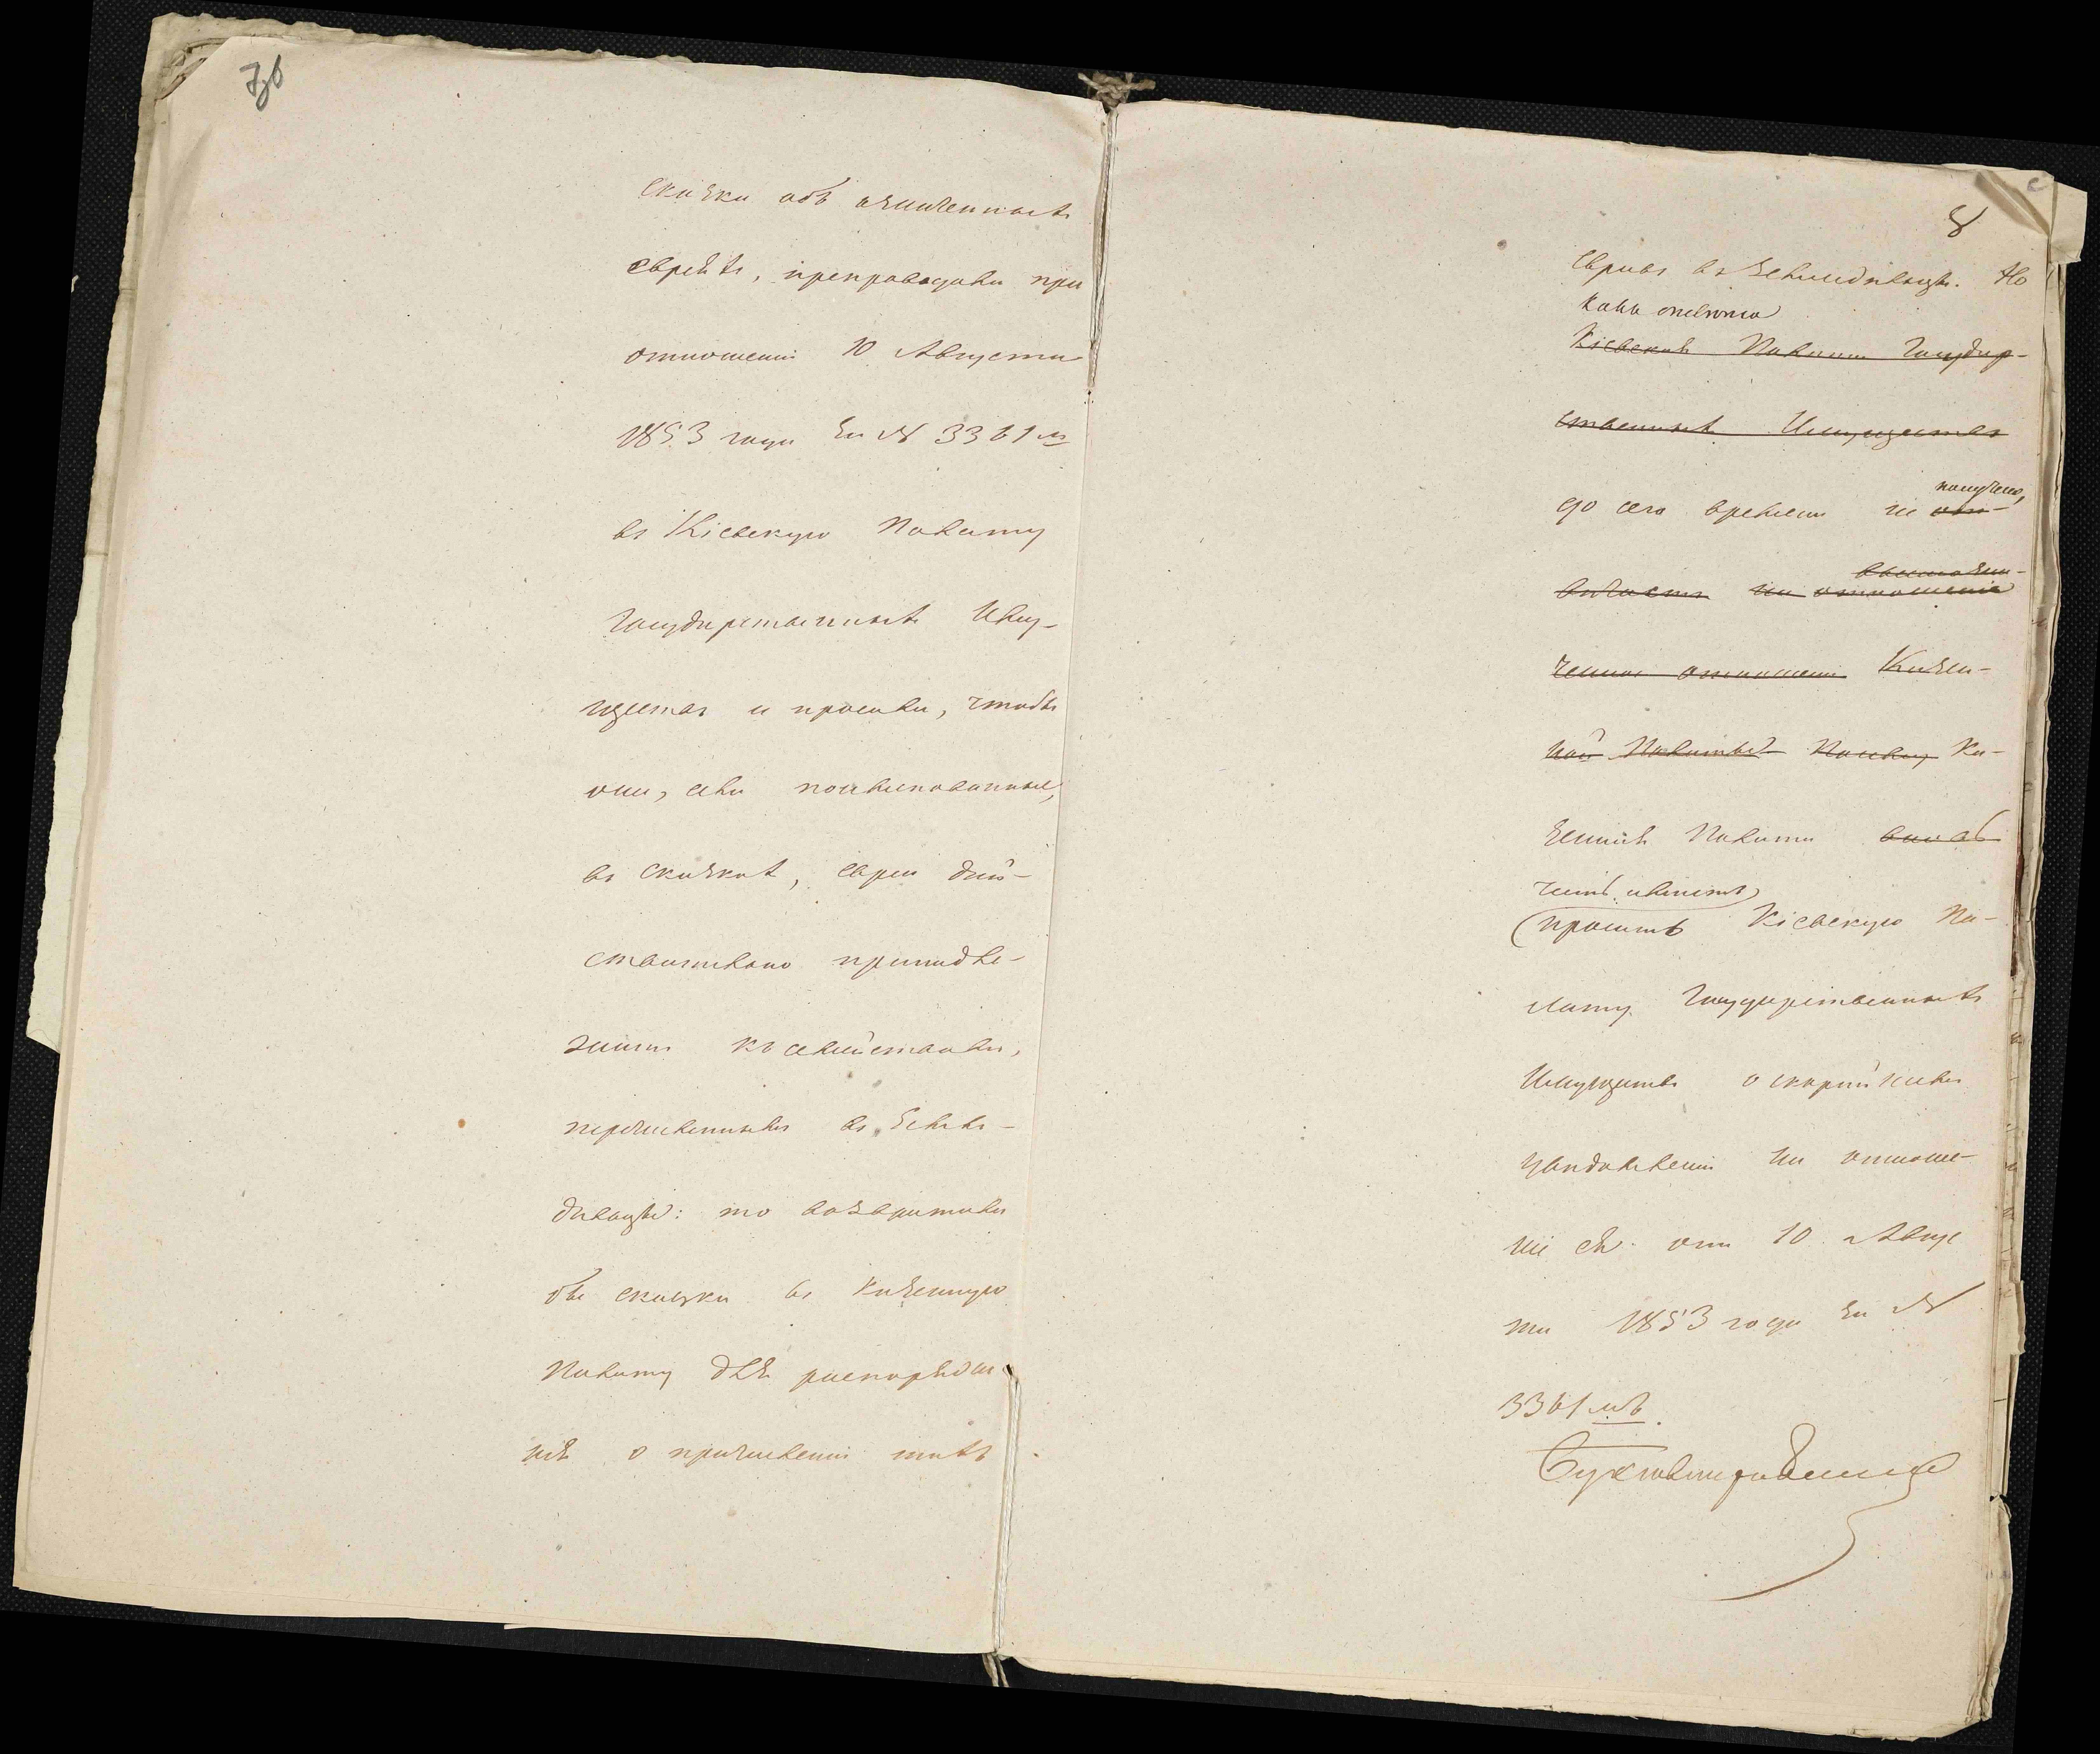 7об
сказки объ означенныхъ
евреяхъ, препроводила при
отношеніи 10 Августа
1853 года за № 3361 м
въ Кіевскую Палату
Государственныхъ Иму-
ществъ и просила, чтобы
если, с
въ сказкахъ, евреи дѣй-
ствительно принадле-
жатъ къ семействамъ,
перечисленнымъ въ Земле-
дѣльцы: то возвратила
бы сказки въ Казенную
Палату для распоряже-
нія о причисленіи такихъ
8
Евреевъ въ Земледѣльцы. Но
какъ отвѣта
Кіевская Палата Государ-
ственныхъ Имуществъ
до сего времени не получено,
отвѣчаетъ на отношеніе
отношеніе Казен-
ной Палаты Ка-
зенная Палата
честь имѣетъ
просить Кіевскую Па-
лату Государственныхъ
Имуществъ о скорѣйшемъ
увѣдомленіи на отноше-
ніе ея отъ 10 Авгус
та 1853 года за №
3361 мъ.